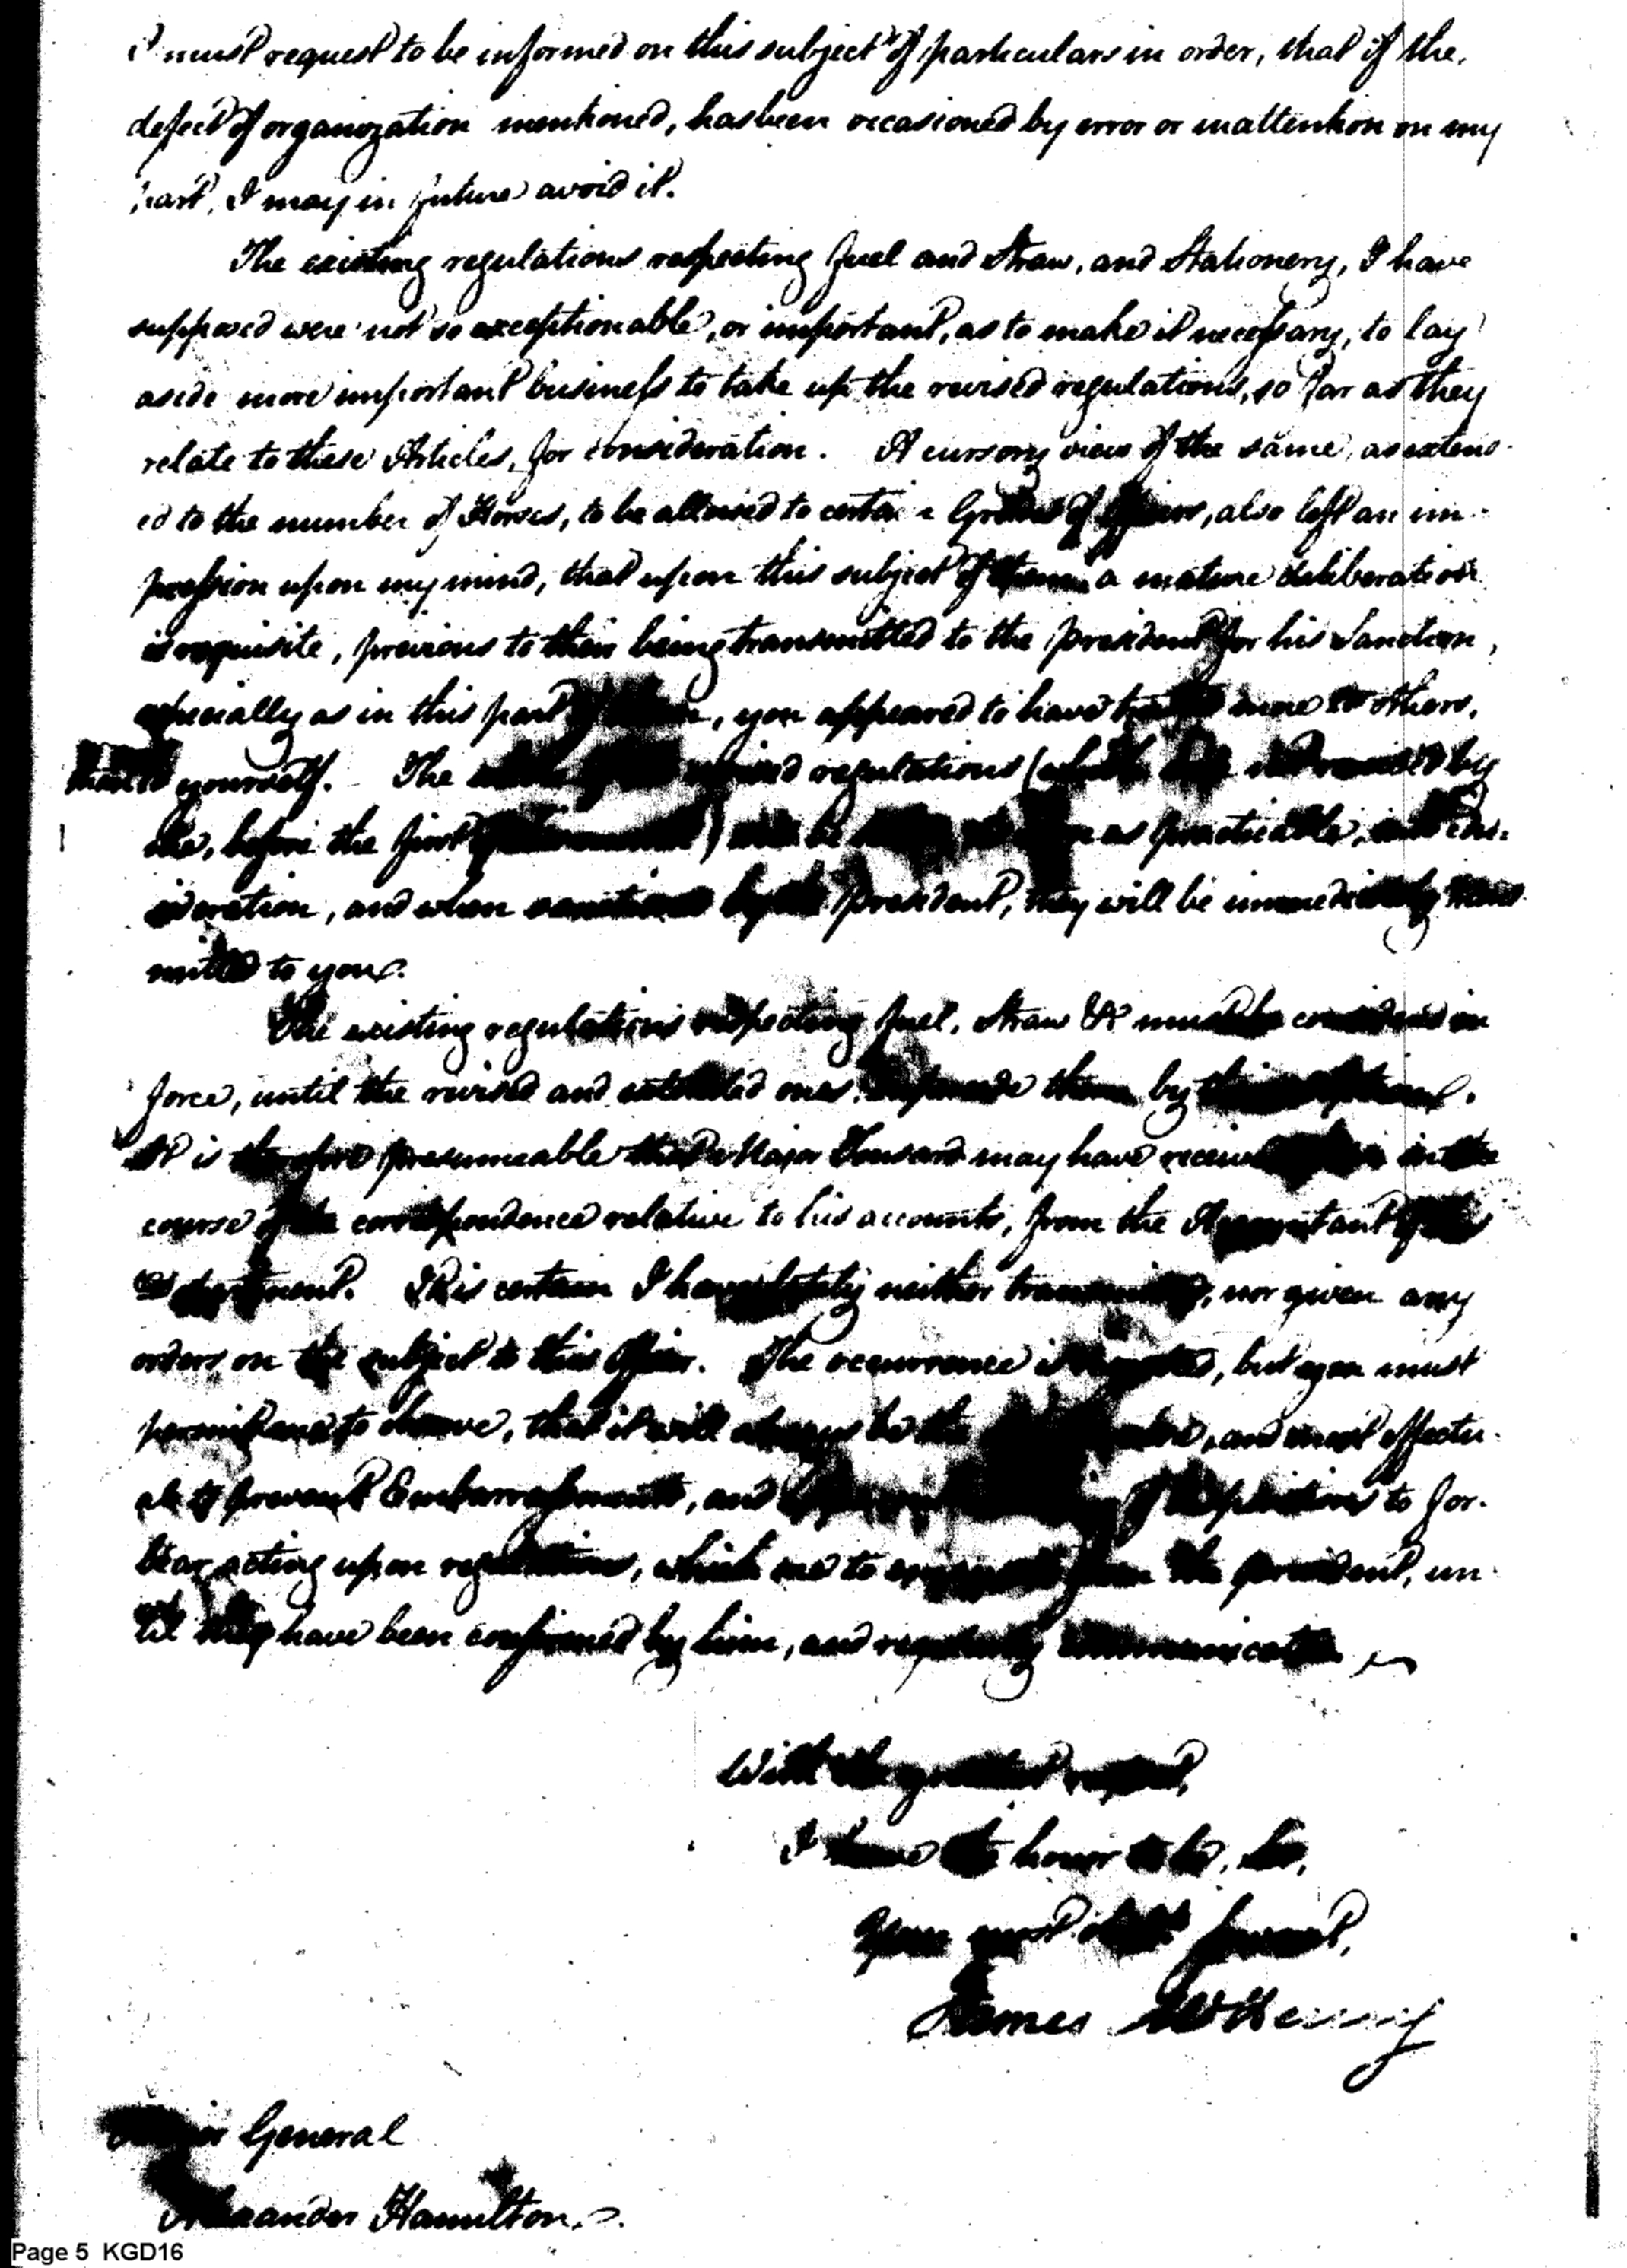 I must request to be informed on this subject of particulars in order, that if the
defect of organization mentioned, has been occasioned by error or inattention on my
part, I may in future avoid it.
The existing regulations respecting fuel and Straw, and Stationery, I have
supposed were not so exceptionable, or important, as to make it necessary, to lay
aside more important business to take up the revised regulations, so far as they
relate to these Articles, for consideration. A cursory view of the same, as extend-
ed to the number of Horses, to be allowed to certain Grades of Officers, also left an im-
pression upon my mind, that upon this subject of them a mature deliberation
is requisite, previous to their being transmitted to the president for his Sanction,
especially as in this part of them, you appeared to have more to others,
than to yourself. The revised regulations (which by
me, before the first ) will be as practicable, into con-
sideration, and when sanctioned by the president, they will be immediately trans
mitted to you.
The existing regulations respecting fuel, Straw &c must be considered in
force, until the revised and extended ones supersede them by
It is therefore presumeable that Major Tousard may have received in the
course of the correspondence relative to his accounts, from the Accountant of the
department. It is certain I have lately neither transmitted, nor given any
orders on the subject to this Officer. The occurrence is regretted, but you must
permit me to observe, that it will always be the , and most effectu-
al to prevent Embarrassments, and to for-
bear acting upon regulations, which are to from the president, un-
til they have been confirmed by him, and regularly communicated
With the greatest respect,
I have the honor to be, Sir,
Your most obedt servant,
James McHenry
Major General
Alexander Hamilton.
Page 5 KGD16